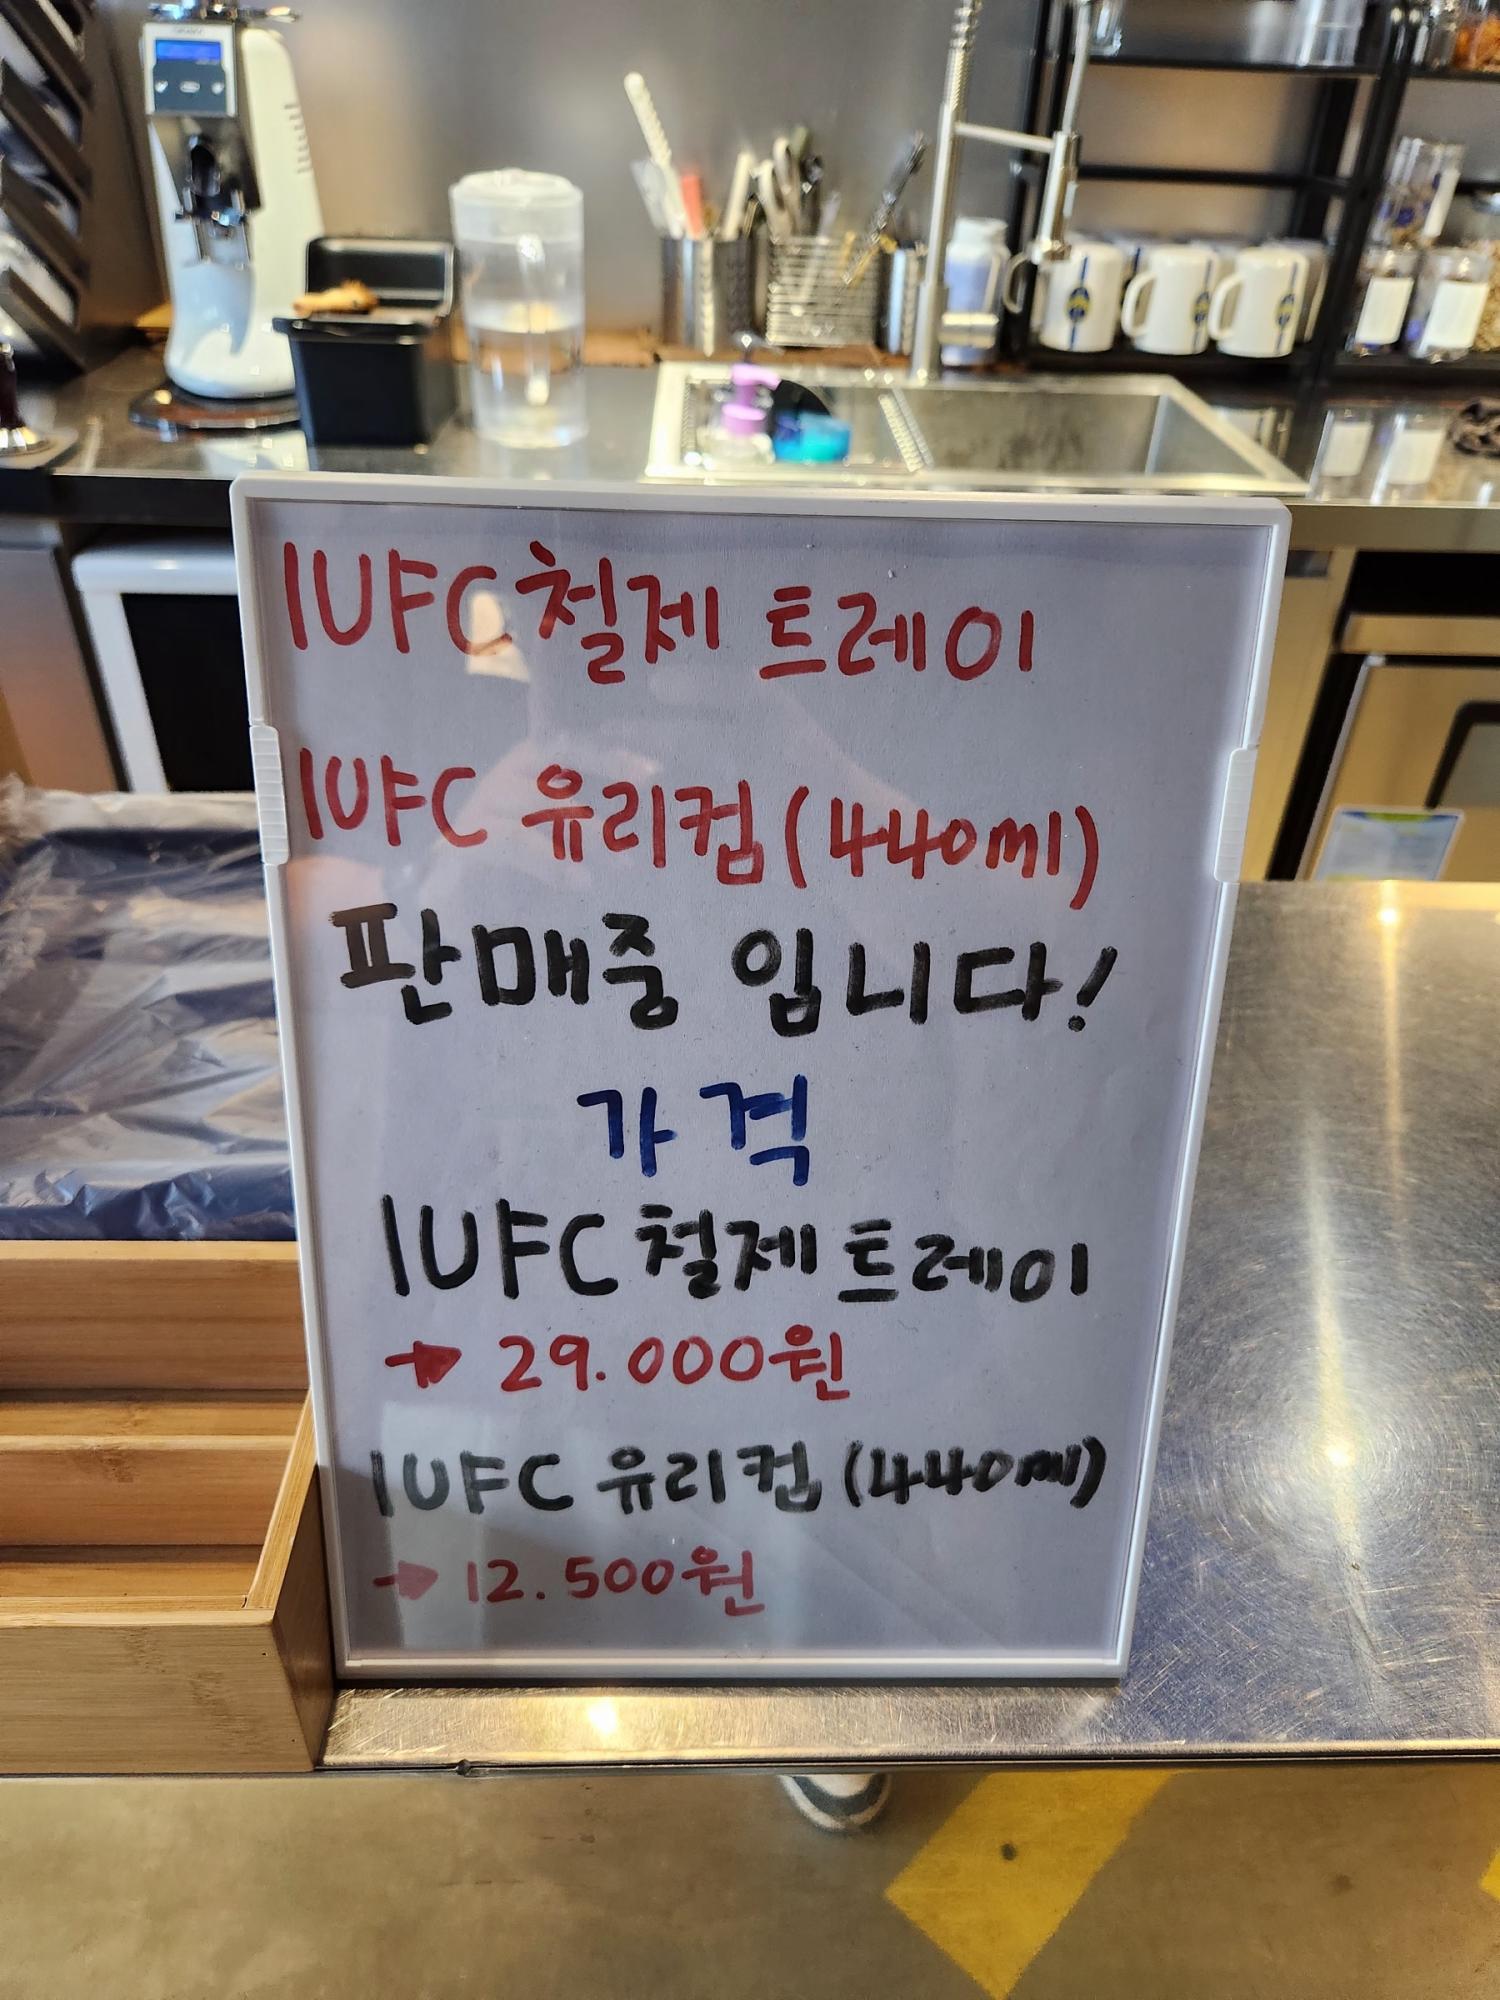 IUFC 철제 트레이
IUFC 유리컵(440ml)
판매중 입니다!
가격
IUFC 철제 트레이
→ 29.000원
IUFC 유리컵 (440ml)
→ 12.500원